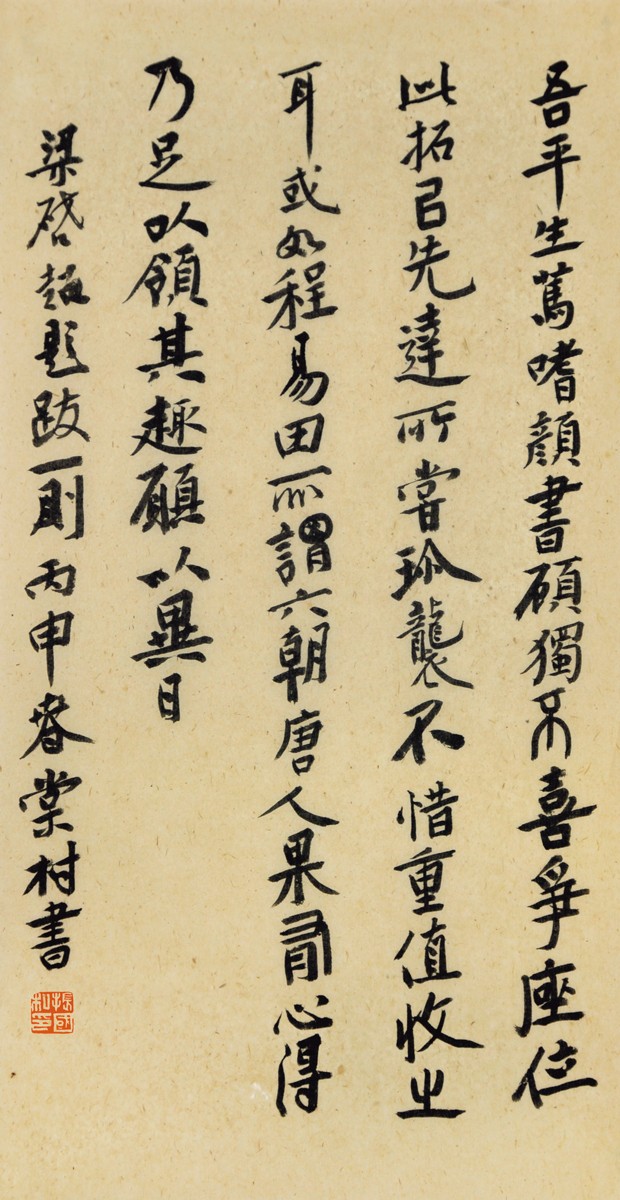 吾平生篤嗜顏書顧獨不喜爭座位
此拓㠯先達所嘗珍襲不惜重值收之
耳或如程易田所謂六朝唐人果有心得
乃足以領其趣願以異日
梁啓超題跋一則丙申春棠村書
張國和印